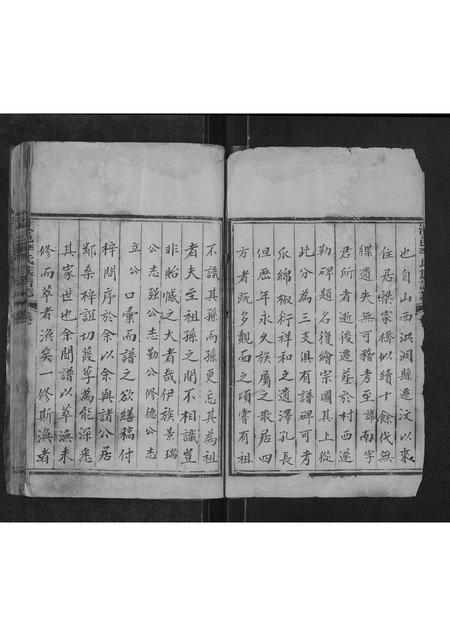 也自山西洪洞縣遷汶以來
住居梁家橋似續十餘代無
牒遺失無可稽考至諱南字
君所者逝後遷塟於村西遂
勒碑題名復繪宗圖其上從
此分為三支俱有譜碑可考
瓜綿椒衍祥和之遺澤孔長
但歷年永久族屬之散居四
方者既多覿面之頃嘗有祖
不識其孫而孫更忘其為祖
者夫至祖孫之間不相識豈
非貽憾之大者哉伊族景瑞
公志强公志勤公修德公志
立公 口彙而譜之欲繕稿付
梓問序於余以余與諸公居
鄰桑梓誼切葭莩為能深悉
其家世也余聞譜以萃渙未
修而萃者渙矣一修斯渙者